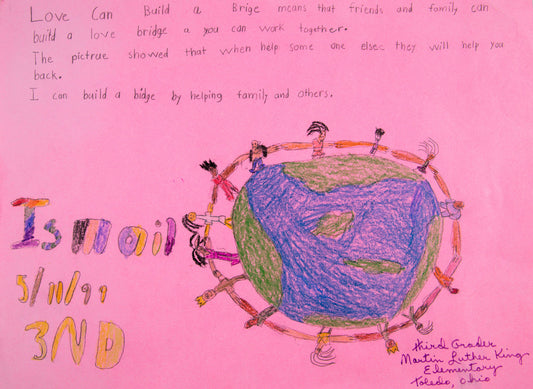 Love Can Build a Brige means that friends and family can
build a love bridge a you can work together.
The pictrue showed that when help some one elsec they will help you
back.
I can build a bidge by helping family and others.
Ismail
5/11/99
3ND
third Grader
Martin Luther King
Elementary
Toledo, Ohio